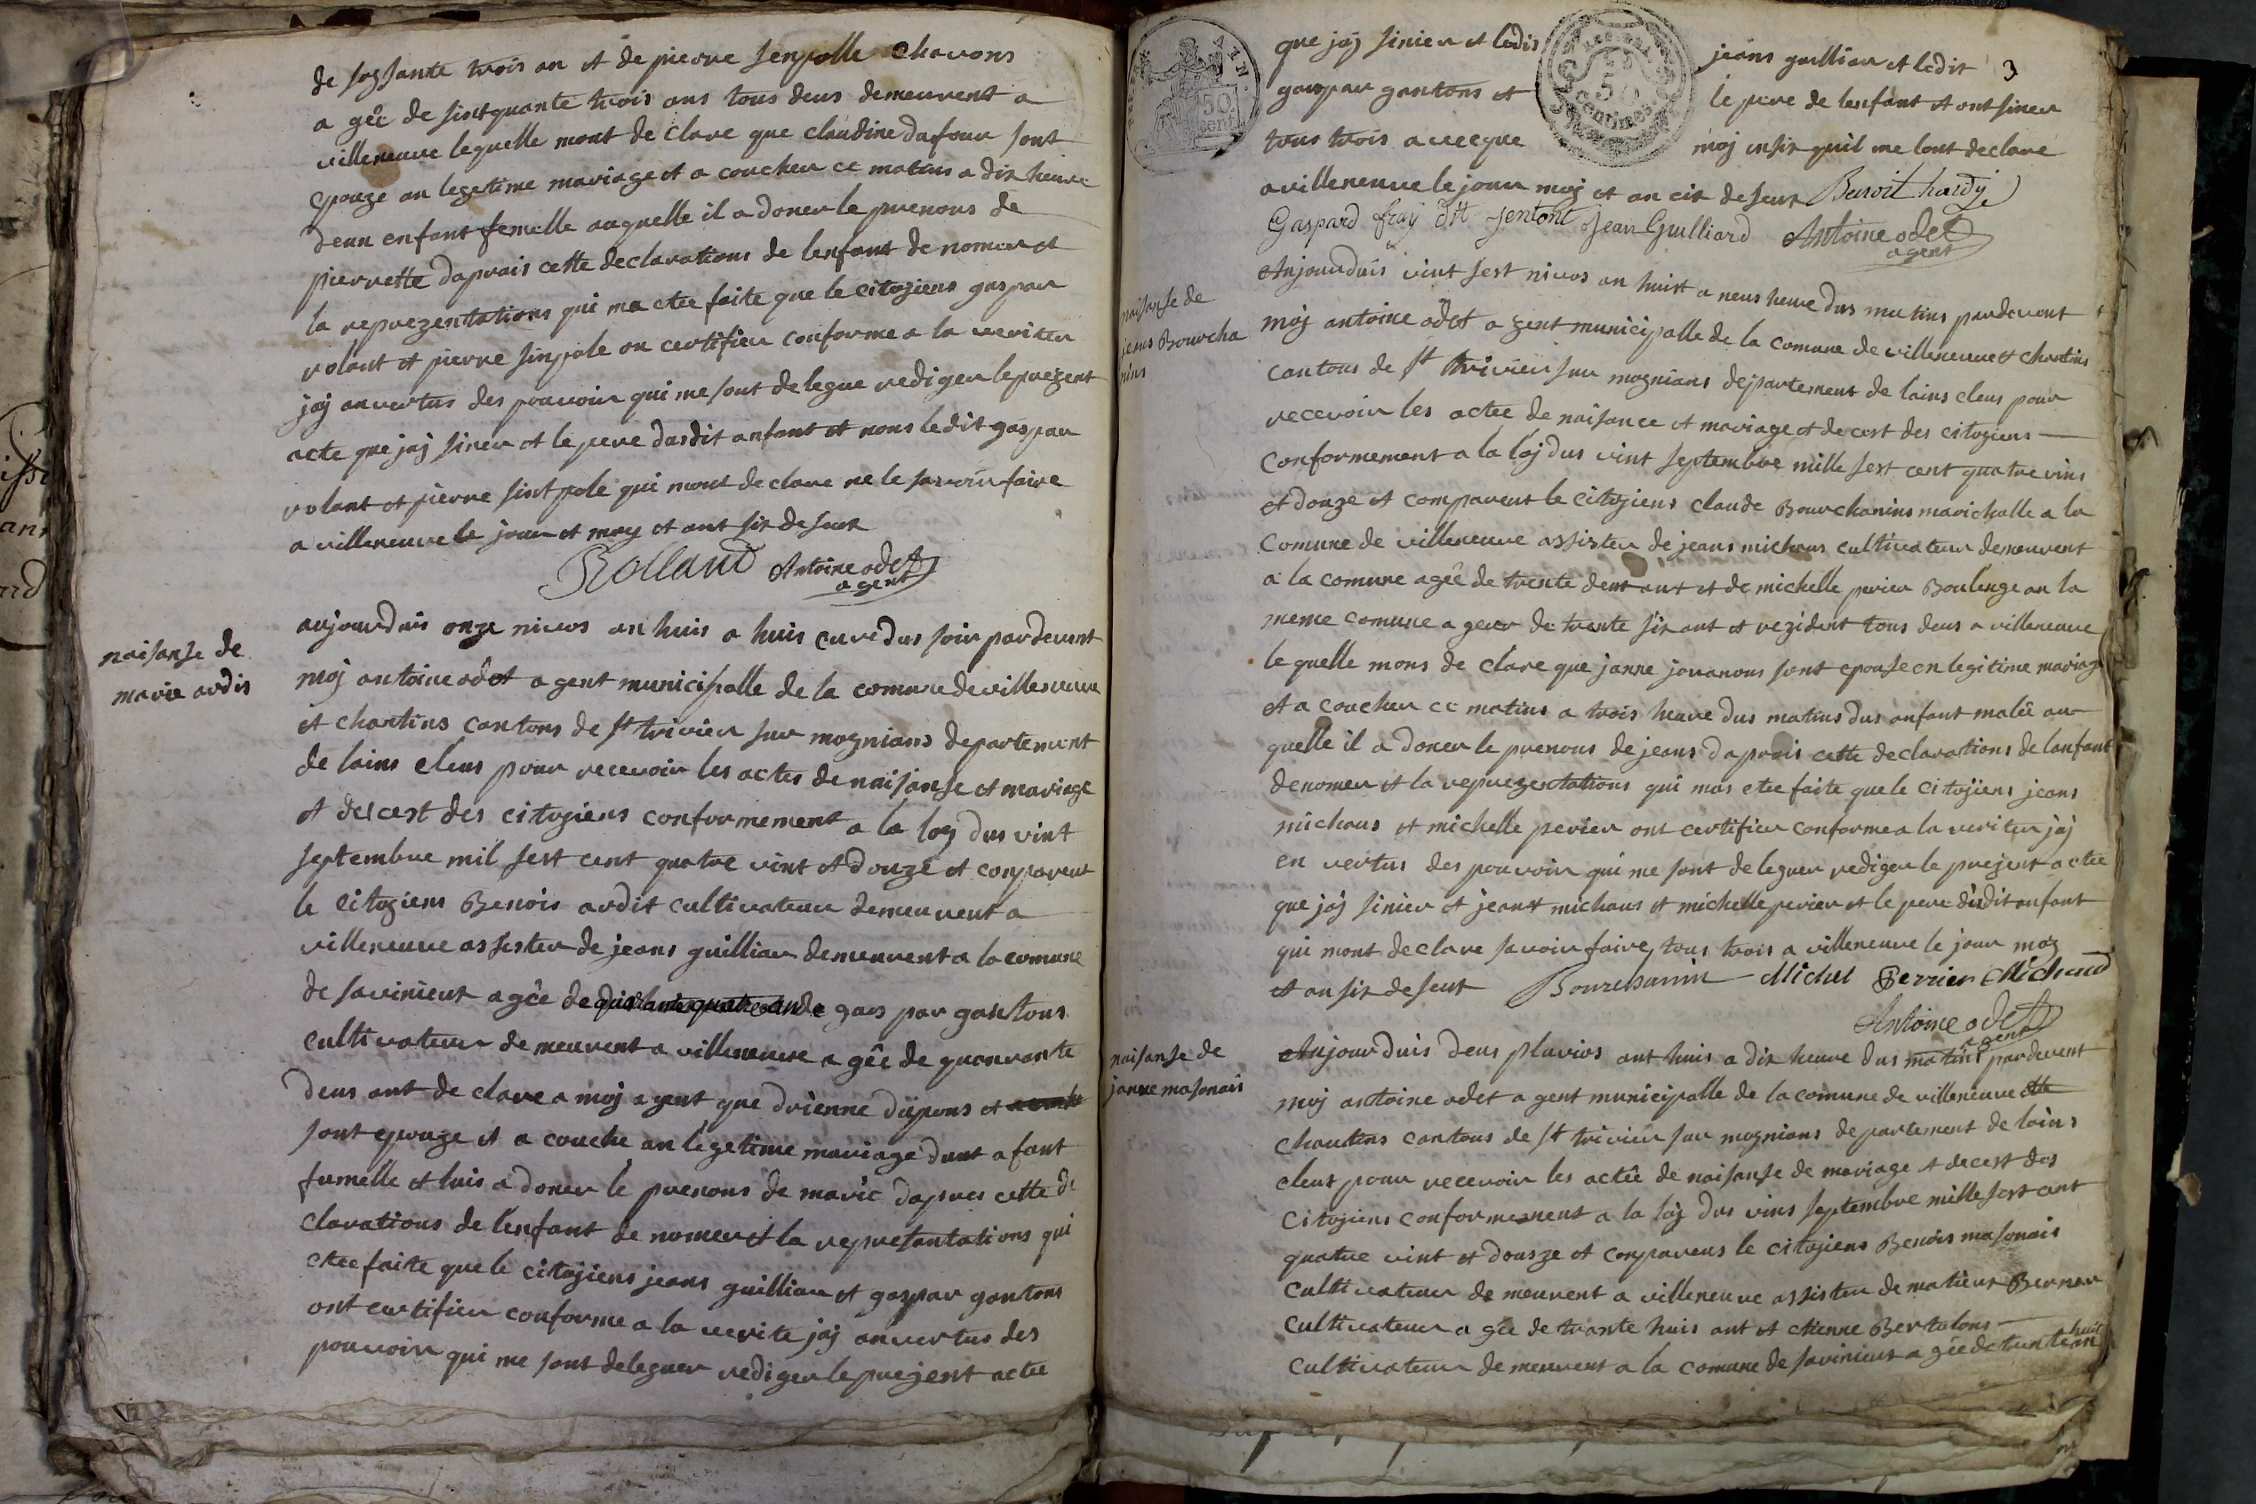 de sogsante trois an et de pierre senpolle charons
a gée de sintquante trois ans tous deus demeuvent a
villeneuve lequelle mont de clare que claudine dufour sont
epouze an legetime mariage et a coucher ce matins a dix heure
deun enfant femelle auquelle il a doner le prenons de
pierrette daprais cette declarations de lenfant de nomer et
la reprezentations qui ma etee faite que le citogiens gaspar
rolant et pierre sinpole on certifier conforme a la veriter
jaj an vertus des pouvoir qui me sont delegue rediger leprezent
acte que jaj siner et le pere dusdit anfant et nous ledit gaspar
rolant et pierre sintpole qui mont declare ne le savoir faire
a villeneuve le jour et moy et ant sit de sur
Rolland Antoine odet
agent
naisanse de
marie ardis
aujourduis onze nivos an huis a huis eure dus soir pardevent
moj antoine odet agent municipalle de la comune de villeneuve
et chantins cantons de st trivier sur mognians departement
de lains eleus pour recevoir les actes de naisanse et mariage
et descest des citogiens conformement a la loy dus vint
septembre mil sest cent quatre vint et douze et conparent
le citogiens Benois ardit cultivateur demeuvent a
villeneuve assister de jeans guilliar demeuvent a la comune
de savinieut a gée de gas par gantons
cultivateur demeuvent a villeneuve a gée de quanrante
deus ant de clare a moj agent que drienne dupons et
sont epouze et a couche an legetime mariage dunt afant
fumelle et luis a doner le prenons de marie dapres cette de
clarations de lenfant de nomer et la represantations qui
etee faite que le citojiens jeans guilliar et gaspar gantons
ont certifier conforme a la verite jaj anvertus des
pouvoir qui me sont deleguer rediger le prezent actee
que jaj sinier et ledis jeans guilliar et ledit 3
gaspar gantons et le pere de lenfant et ont siner
tous trois avecque moj insit quil me lont declare
a villeneuve le jour moj et an cit de seur Benoit hardy
Gaspard fray dit jentont Jean Guilliard Antoine odet
agent
naisanse de
jeans Bourcha
nins
Anjourduis vint sest nivos an huit a neus heure dus matins pardevent
moj antoine odet agent municipalle de la comune de villeneuve et chantins
cantons de st trivier sur mognians departement de lains eleus pour
recevoir les actee de naisance et mariage et decest des citogiens
conformement a la loj dus vint septembre mille sest cent quatre vins
et douze et comparent le citogiens claude Bourchanins marichalle a la
comune de villeneuve assister de jeans michaus cultivateur demeuvent
a la comune agée de trente deut ant et de michelle perier Boulenge an la
meme comune a geer de trente sit ant et rezident tous deus a villeneuve
le quelle mons de clare que janne jovanous sont epouse en legitime mariage
et a coucher ce matins a trois heure dus matins dus anfant malee au
quelle il a doner le prenous de jeans daprais cette declarations de lanfant
denomer et la reprezentations qui mas etee faite que le citojiens jeans
michaus et michelle perier ont certifier conforme a la veriter jaj
en vertus des pouvoir qui me sont deleguer rediger le prejent actee
que jaj sinier et jeant michaus et michelle perier et le pere dusdit anfant
qui mont declare savoir faire tous trois a villeneuve le jour moj
et an sit de seut Bourchanin Michel Perrier Michaud
Antoine odet
agent
naisanse de
janne masonais
Anjourduis deus pluvios ant huis a dix heure dus matins pardevent
moj antoine odet agent municipalle de la comune de villeneuve
chantins cantons de st trivier sur mognians departement de lains
eleut pour recevoir les actée de naisanse de mariage et decest des
citogiens conformement a la loj dus vins septembre mille sest cent
quatre vint et dousze et conparens le citojiens Benois masonais
cultivateur demeuvent a villeneuve assister de matieut Bernar
cultivateur a gée de trante huis ant et etienne Bertalons
cultivateur demeuvent a la comune de savinieus a gée de trante huit an